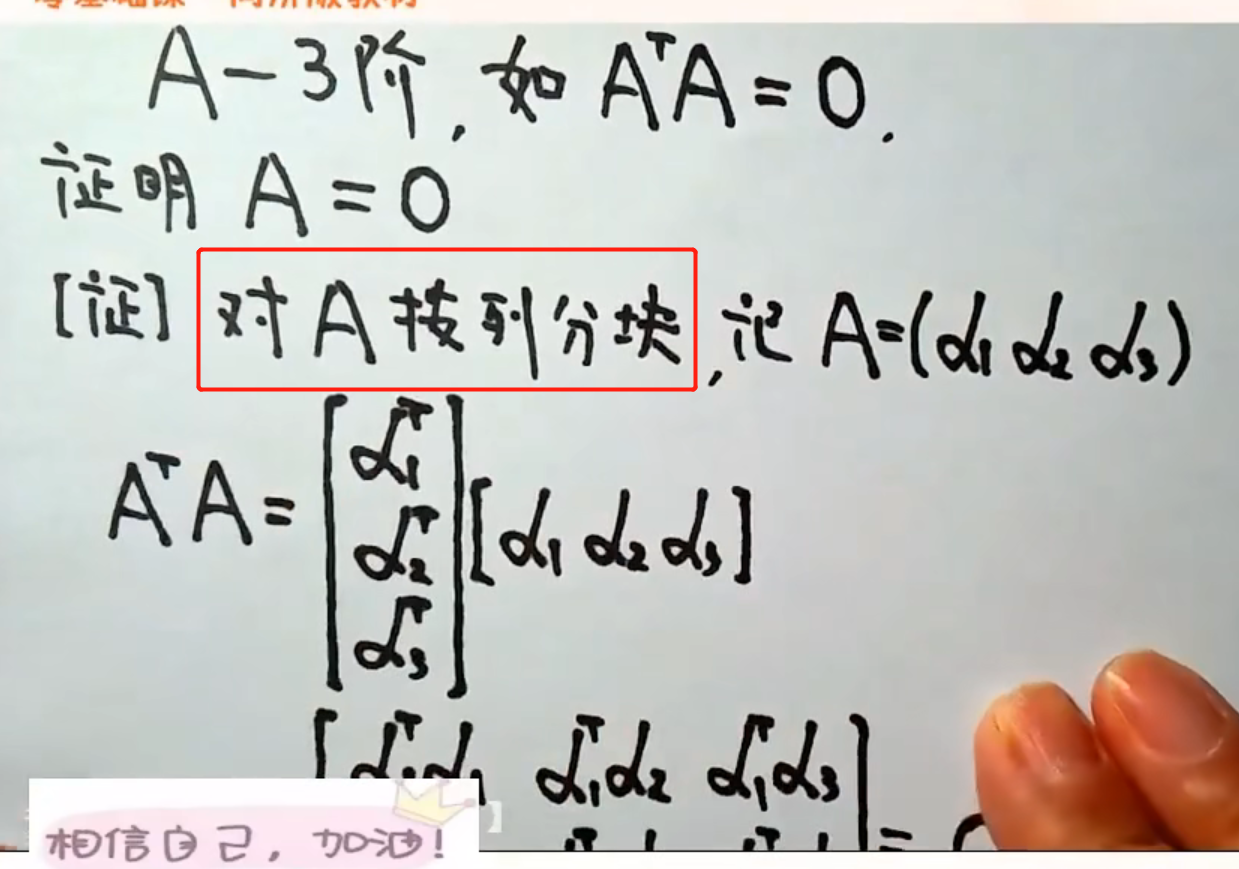 A-3阶,如 AᵀA=0.
证明 A=0
[证] 对A按列分块,记 A=(α₁ α₂ α₃)
AᵀA=[α₁ᵀ α₂ᵀ α₃ᵀ][α₁ α₂ α₃]
[α₁ᵀα₁ α₁ᵀα₂ α₁ᵀα₃]=
相信自己,加油!